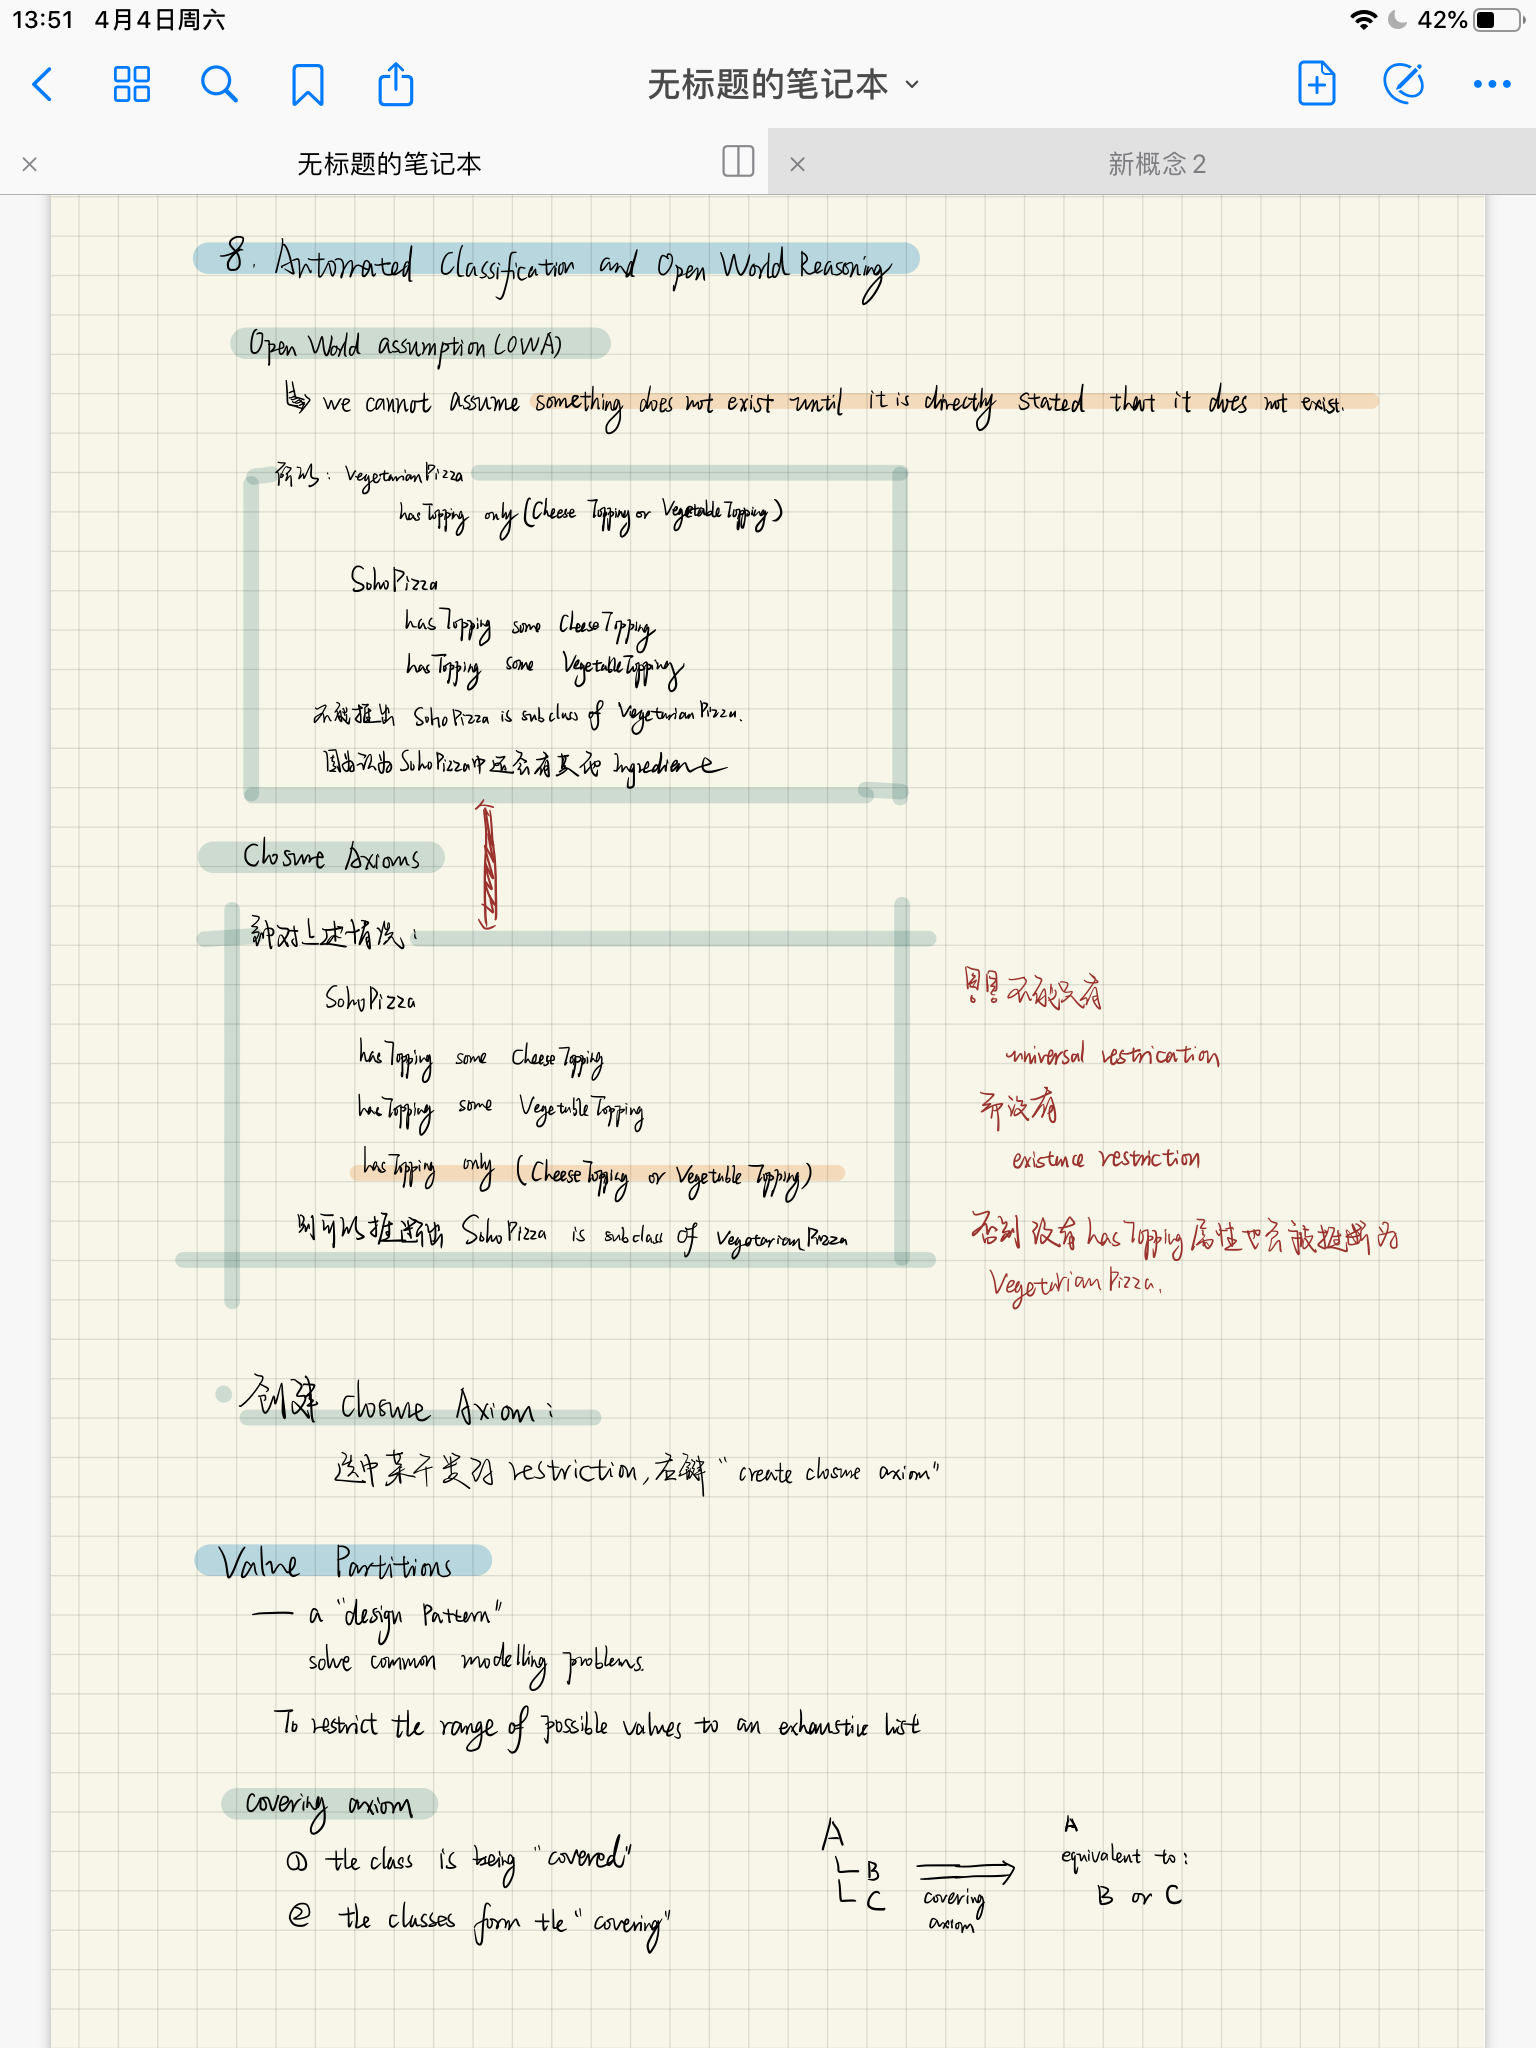 13:51 4月4日周六
42%
无标题的笔记本
无标题的笔记本
新概念2
8. Automated Classification and Open World Reasoning
Open World assumption (OWA)
we cannot assume something does not exist until it is directly stated that it does not exist.
所以: VegetarianPizza
hasTopping only (Cheese Topping or VegetableTopping)
SohoPizza
hasTopping some CheeseTopping
hasTopping some VegetableTopping
不能推出 SohoPizza is subclass of VegetarianPizza.
因为认为SohoPizza中还会有其他 Ingredient
Closure Axioms
针对上述情况:
SohoPizza
hasTopping some CheeseTopping
hasTopping some VegetableTopping
hasTopping only (CheeseTopping or Vegetable Topping)
则可以推断出 SohoPizza is subclass of VegetarianPizza
不能只有
universal restrication
却没有
existence restriction
否则没有hasTopping属性也会被推断为
VegetarianPizza.
创建 Closure Axiom:
选中某个类的 restriction, 右键 "create closure axiom"
Value Partitions
— a "design Pattern"
solve common modelling problems.
To restrict the range of possible values to an exhaustive list
covering axiom
① the class is being "covered"
② the classes form the "covering"
A
B
C
covering
axiom
A
equivalent to:
B or C